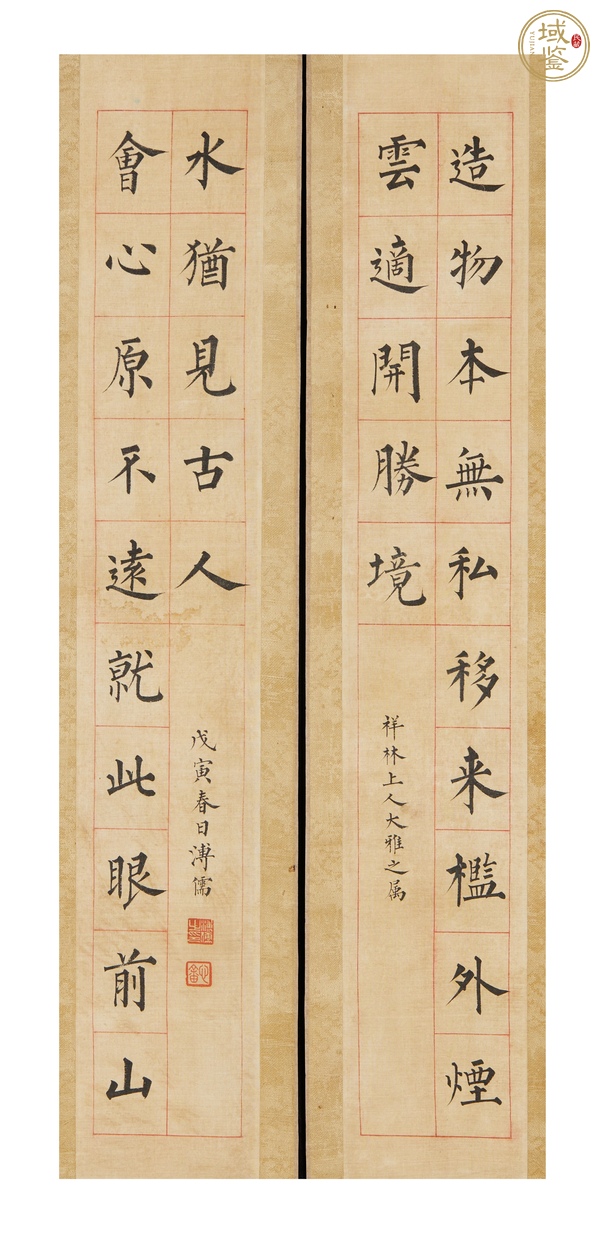 造物本無私移来檻外煙
雲適開勝境
祥林上人大雅之属
會心原不遠就此眼前山
水猶見古人
戊寅春日溥儒
域鉴